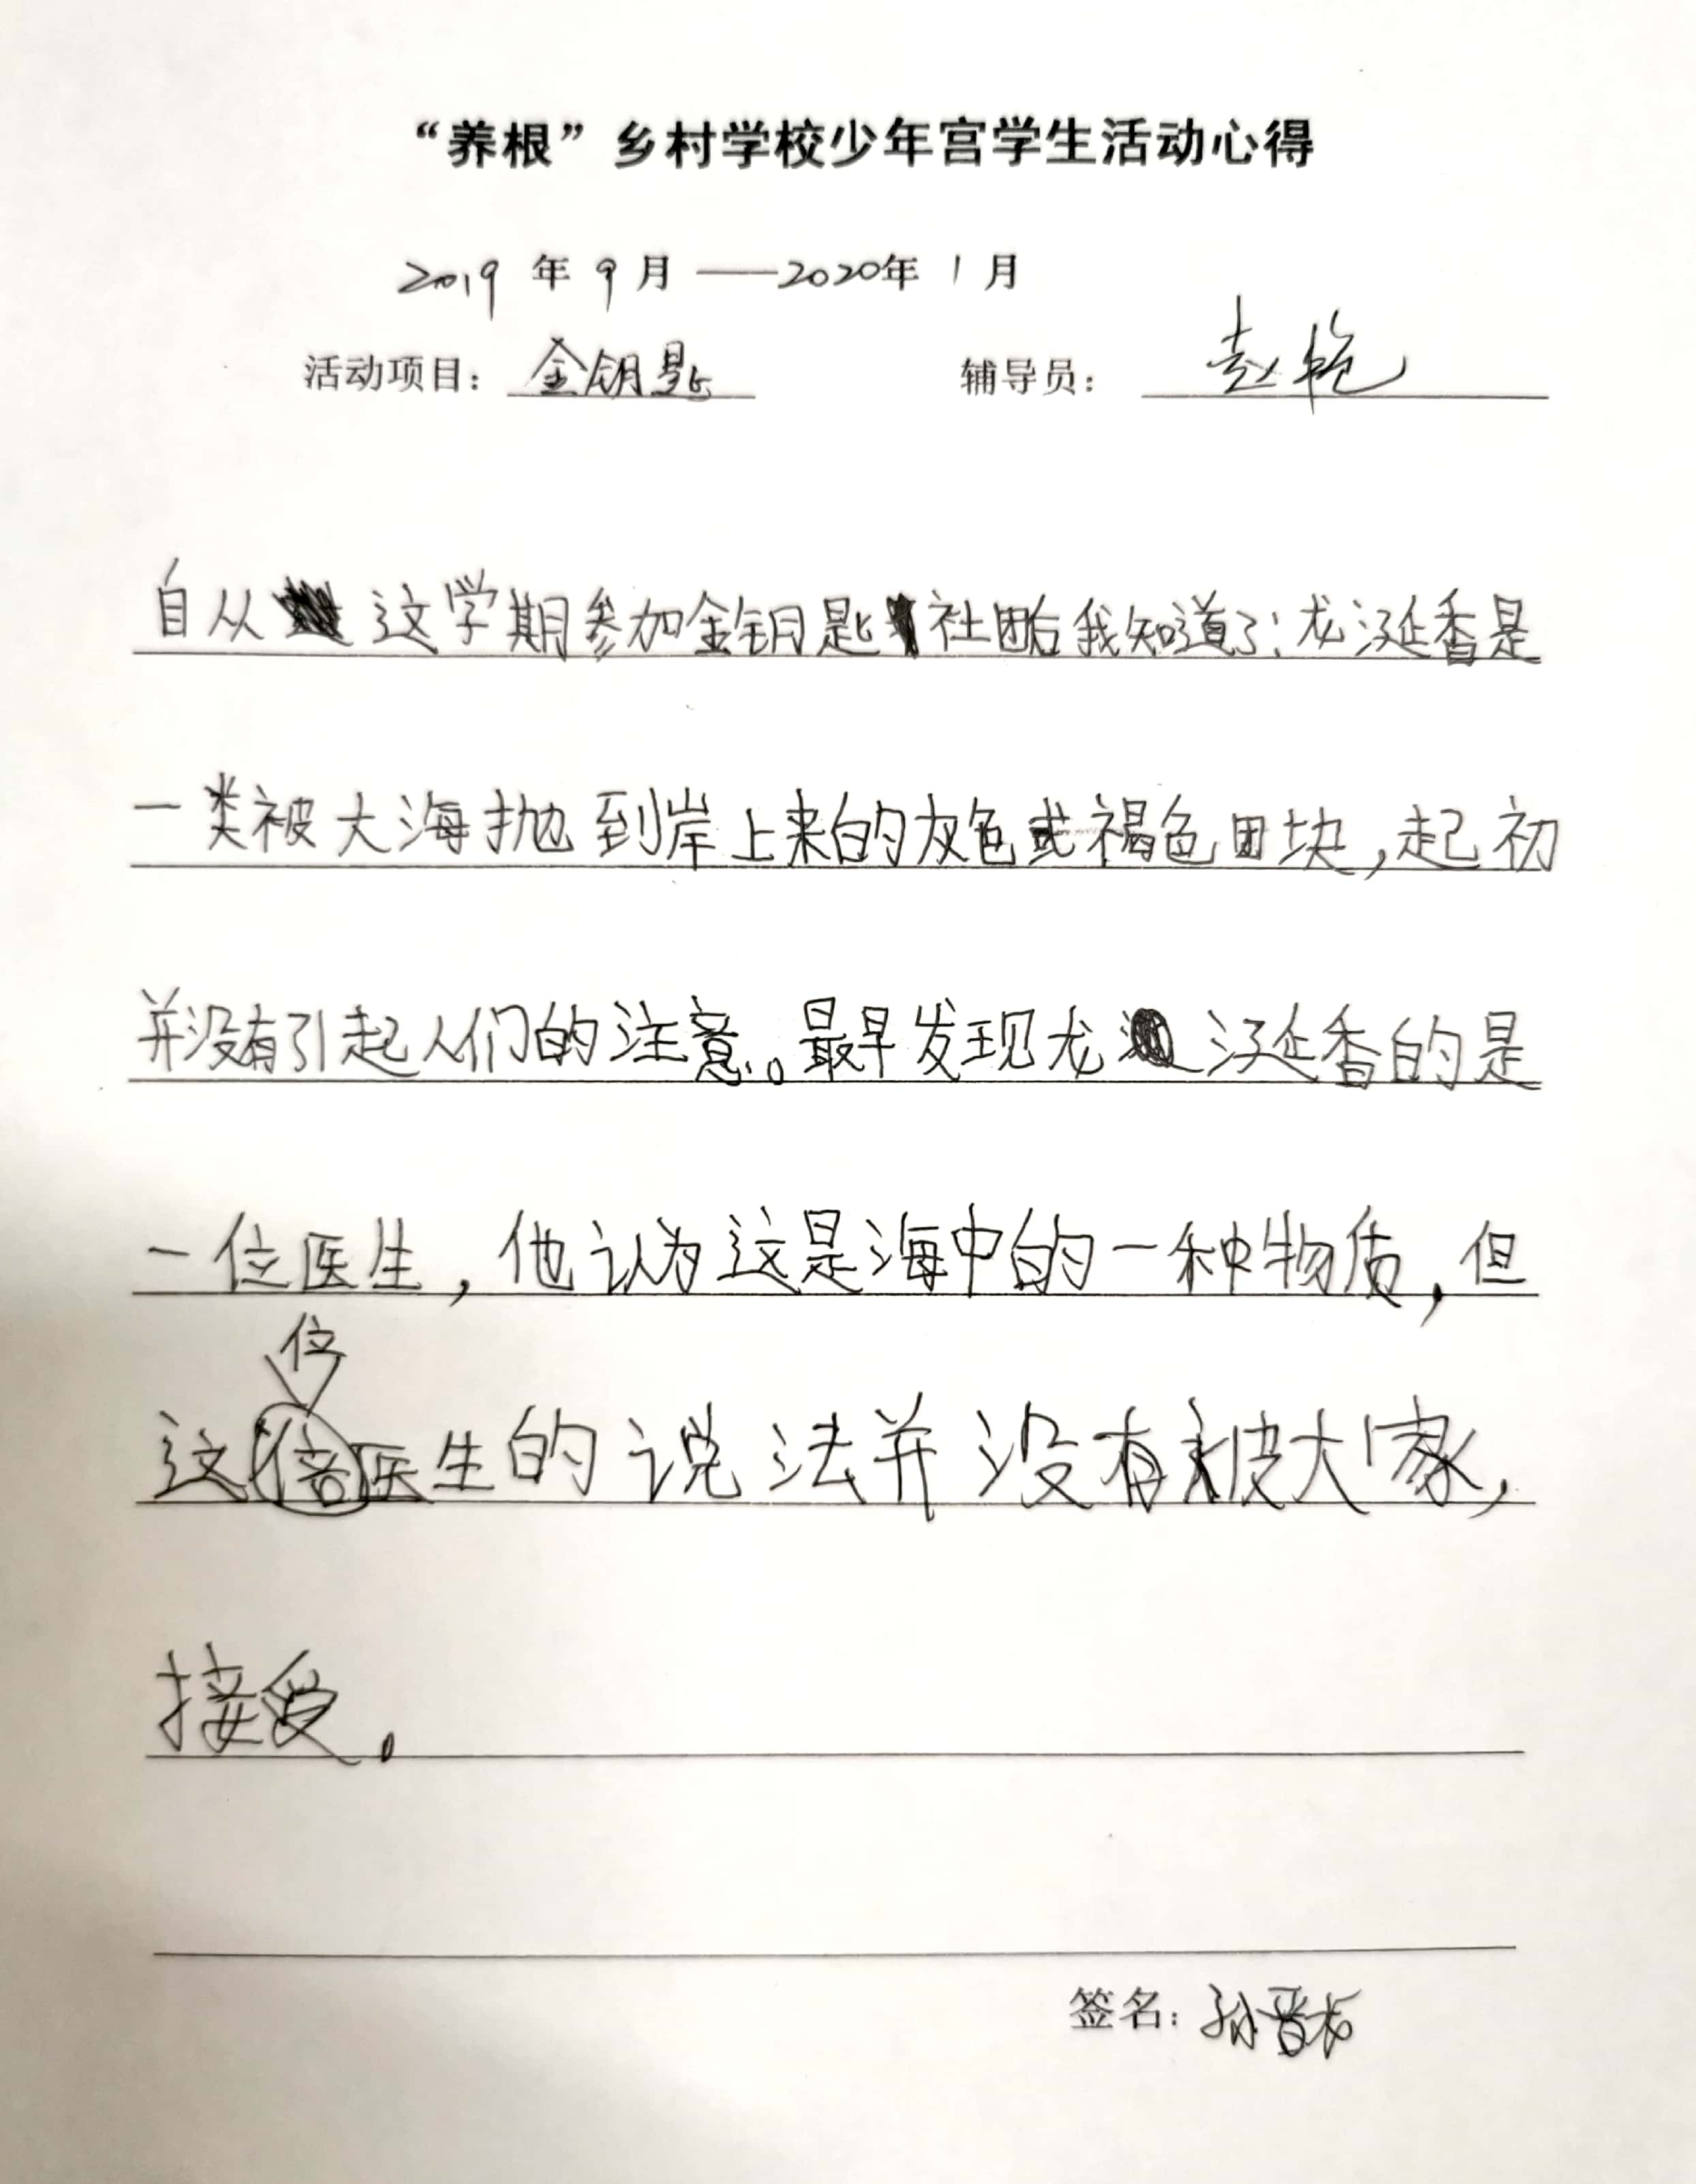 “养根”乡村学校少年宫学生活动心得
2019 年 9 月 ——2020年 1 月
活动项目：金钥匙 辅导员：赵艳
自从这学期参加金钥匙社团后我知道了：龙涎香是
一类被大海抛到岸上来的灰色或褐色团块，起初
并没有引起人们的注意。最早发现龙涎香的是
一位医生，他认为这是海中的一种物质，但
位
这倍医生的说法并没有被大家，
接受。
签名：孙晋